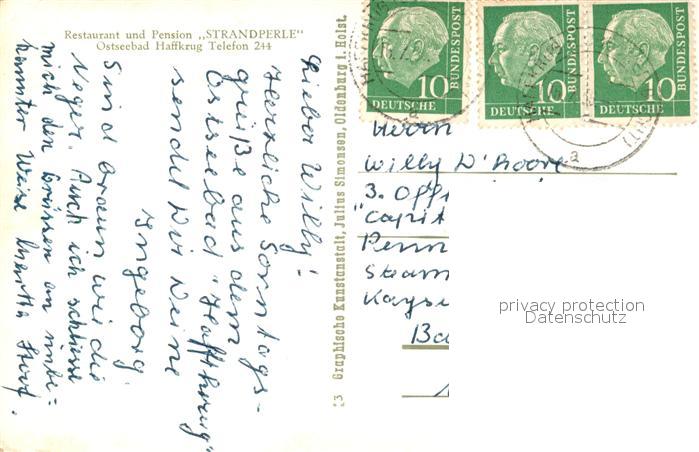 Restaurant und Pension „STRANDPERLE"
Ostseebad Haffkrug Telefon 244
Lieber Willy!
Herzliche Sonntags-
grüße aus dem
Ostseebad "Haffkrug"
sendet Dir Deine
Ingeborg.
Sind braun wie die
Neger. Auch ich schliesse
mich den Grüssen an unbe=
kannter Weise
23 Graphische Kunstanstalt, Julius Simonsen, Oldenburg i. Holst.
10
DEUTSCHE
BUNDESPOST
10
DEUTSCHE
BUNDESPOST
10
DEUTSCHE
BUNDESPOST
a
a
Herrn
Willy D'hoore
3. Offi
"Capit
Penn
Steam
Kayse
Ba
privacy protection
Datenschutz